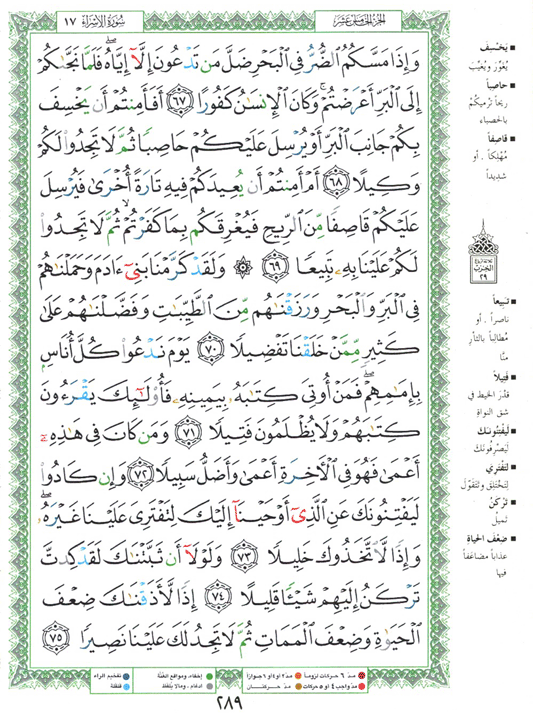 الجزء الخامس عشر
سُورَةُ الإِسْرَاءِ ١٧
وَإِذَا مَسَّكُمُ ٱلضُّرُّ فِي ٱلْبَحْرِ ضَلَّ مَن تَدْعُونَ إِلَّآ إِيَّاهُ ۖ فَلَمَّا نَجَّىٰكُمْ
إِلَى ٱلْبَرِّ أَعْرَضْتُمْ ۚ وَكَانَ ٱلْإِنسَٰنُ كَفُورًا ٦٧ أَفَأَمِنتُمْ أَن يَخْسِفَ
بِكُمْ جَانِبَ ٱلْبَرِّ أَوْ يُرْسِلَ عَلَيْكُمْ حَاصِبًا ثُمَّ لَا تَجِدُوا۟ لَكُمْ
وَكِيلًا ٦٨ أَمْ أَمِنتُمْ أَن يُعِيدَكُمْ فِيهِ تَارَةً أُخْرَىٰ فَيُرْسِلَ
عَلَيْكُمْ قَاصِفًا مِّنَ ٱلرِّيحِ فَيُغْرِقَكُم بِمَا كَفَرْتُمْ ۙ ثُمَّ لَا تَجِدُوا۟
لَكُمْ عَلَيْنَا بِهِۦ تَبِيعًا ٦٩ ۞ وَلَقَدْ كَرَّمْنَا بَنِىٓ ءَادَمَ وَحَمَلْنَٰهُمْ
فِى ٱلْبَرِّ وَٱلْبَحْرِ وَرَزَقْنَٰهُم مِّنَ ٱلطَّيِّبَٰتِ وَفَضَّلْنَٰهُمْ عَلَىٰ
كَثِيرٍ مِّمَّنْ خَلَقْنَا تَفْضِيلًا ٧٠ يَوْمَ نَدْعُوا۟ كُلَّ أُنَاسٍۭ
بِإِمَٰمِهِمْ ۖ فَمَنْ أُوتِىَ كِتَٰبَهُۥ بِيَمِينِهِۦ فَأُو۟لَٰٓئِكَ يَقْرَءُونَ
كِتَٰبَهُمْ وَلَا يُظْلَمُونَ فَتِيلًا ٧١ وَمَن كَانَ فِى هَٰذِهِۦٓ
أَعْمَىٰ فَهُوَ فِى ٱلْءَاخِرَةِ أَعْمَىٰ وَأَضَلُّ سَبِيلًا ٧٢ وَإِن كَادُوا۟
لَيَفْتِنُونَكَ عَنِ ٱلَّذِىٓ أَوْحَيْنَآ إِلَيْكَ لِتَفْتَرِىَ عَلَيْنَا غَيْرَهُۥ ۖ
وَإِذًا لَّٱتَّخَذُوكَ خَلِيلًا ٧٣ وَلَوْلَآ أَن ثَبَّتْنَٰكَ لَقَدْ كِدتَّ
تَرْكَنُ إِلَيْهِمْ شَيْـًٔا قَلِيلًا ٧٤ إِذًا لَّأَذَقْنَٰكَ ضِعْفَ
ٱلْحَيَوٰةِ وَضِعْفَ ٱلْمَمَاتِ ثُمَّ لَا تَجِدُ لَكَ عَلَيْنَا نَصِيرًا ٧٥
يَخْسِفَ
يُغَوِّرَ ويُغَيِّبَ
حاصباً
ريحاً ترميكم
بالحصباء
قاصِفاً
مُهْلِكاً . أو
شديداً
الحزب
٢٩
تبيعاً
ناصراً . أو
مُطالِباً بالثأر
منّا
فتيلاً
قَدْرَ الخيط في
شق النواة
ليفتنونك
ليَصْرفُونَك
لتفتري
لتختلق وتتقوّل
تركنُ
تميلُ
ضِعْفَ الحياة
عذاباً مضاعفاً
فيها
مدّ ٦ حركات لزوماً
مدّ ٢ أو ٤ أو ٦ جوازاً
إخفاء، ومواقع الغُنَّة
تفخيم الراء
مدّ واجب ٤ أو ٥ حركات
مدّ حركتان
إدغام ، وما لا يُلفَظ
قلقلة
٢٨٩